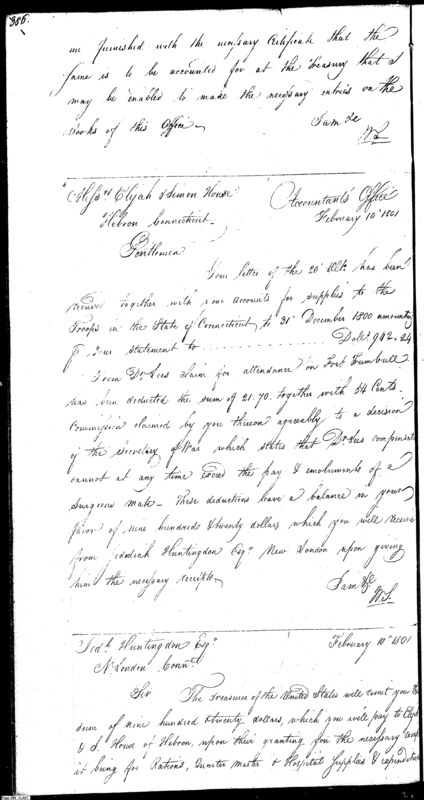 386.
me furnished with the necessary Certificate that the
same is to be accounted for at the Treasury that I
may be enabled to make the necessary entries on the
Books of this Office.
I am &c
W.S.
Messrs Elijah & Simon House
Hebron Connecticut.
Accountants Office
February 10th 1801
Gentlemen
Your letter of the 20th Ulto. has been
received together with your accounts for supplies to the
Troops in the State of Connecticut to 31st December 1800 amounting
Pr your statement to Dolls. 942.24
From Dr. Lees claim for attendance on Fort Trumbull
has been deducted the sum of 21.70. together with 54 Cents.
Commission claimed by you thereon agreeably to a decision
of the Secretary of War which states that Dr. Lees compensation
cannot at any time exceed the pay & emoluments of a
Surgeons Mate. These deductions leave a balance in your
favor of nine hundred & twenty dollars which you will receive
from Jedediah Huntingdon Esqr. New London upon giving
him the necessary receipts.
I am &c
W.S.
Jedh. Huntingdon Esqr.
N. London Connt.
February 10th 1801
Sir
The Treasurer of the United States will remit you the
sum of nine hundred & twenty dollars, which you will pay to Elijah
& S. House of Hebron, upon their granting you the necessary
it being for Rations, Quarter master & Hospital Supplies &